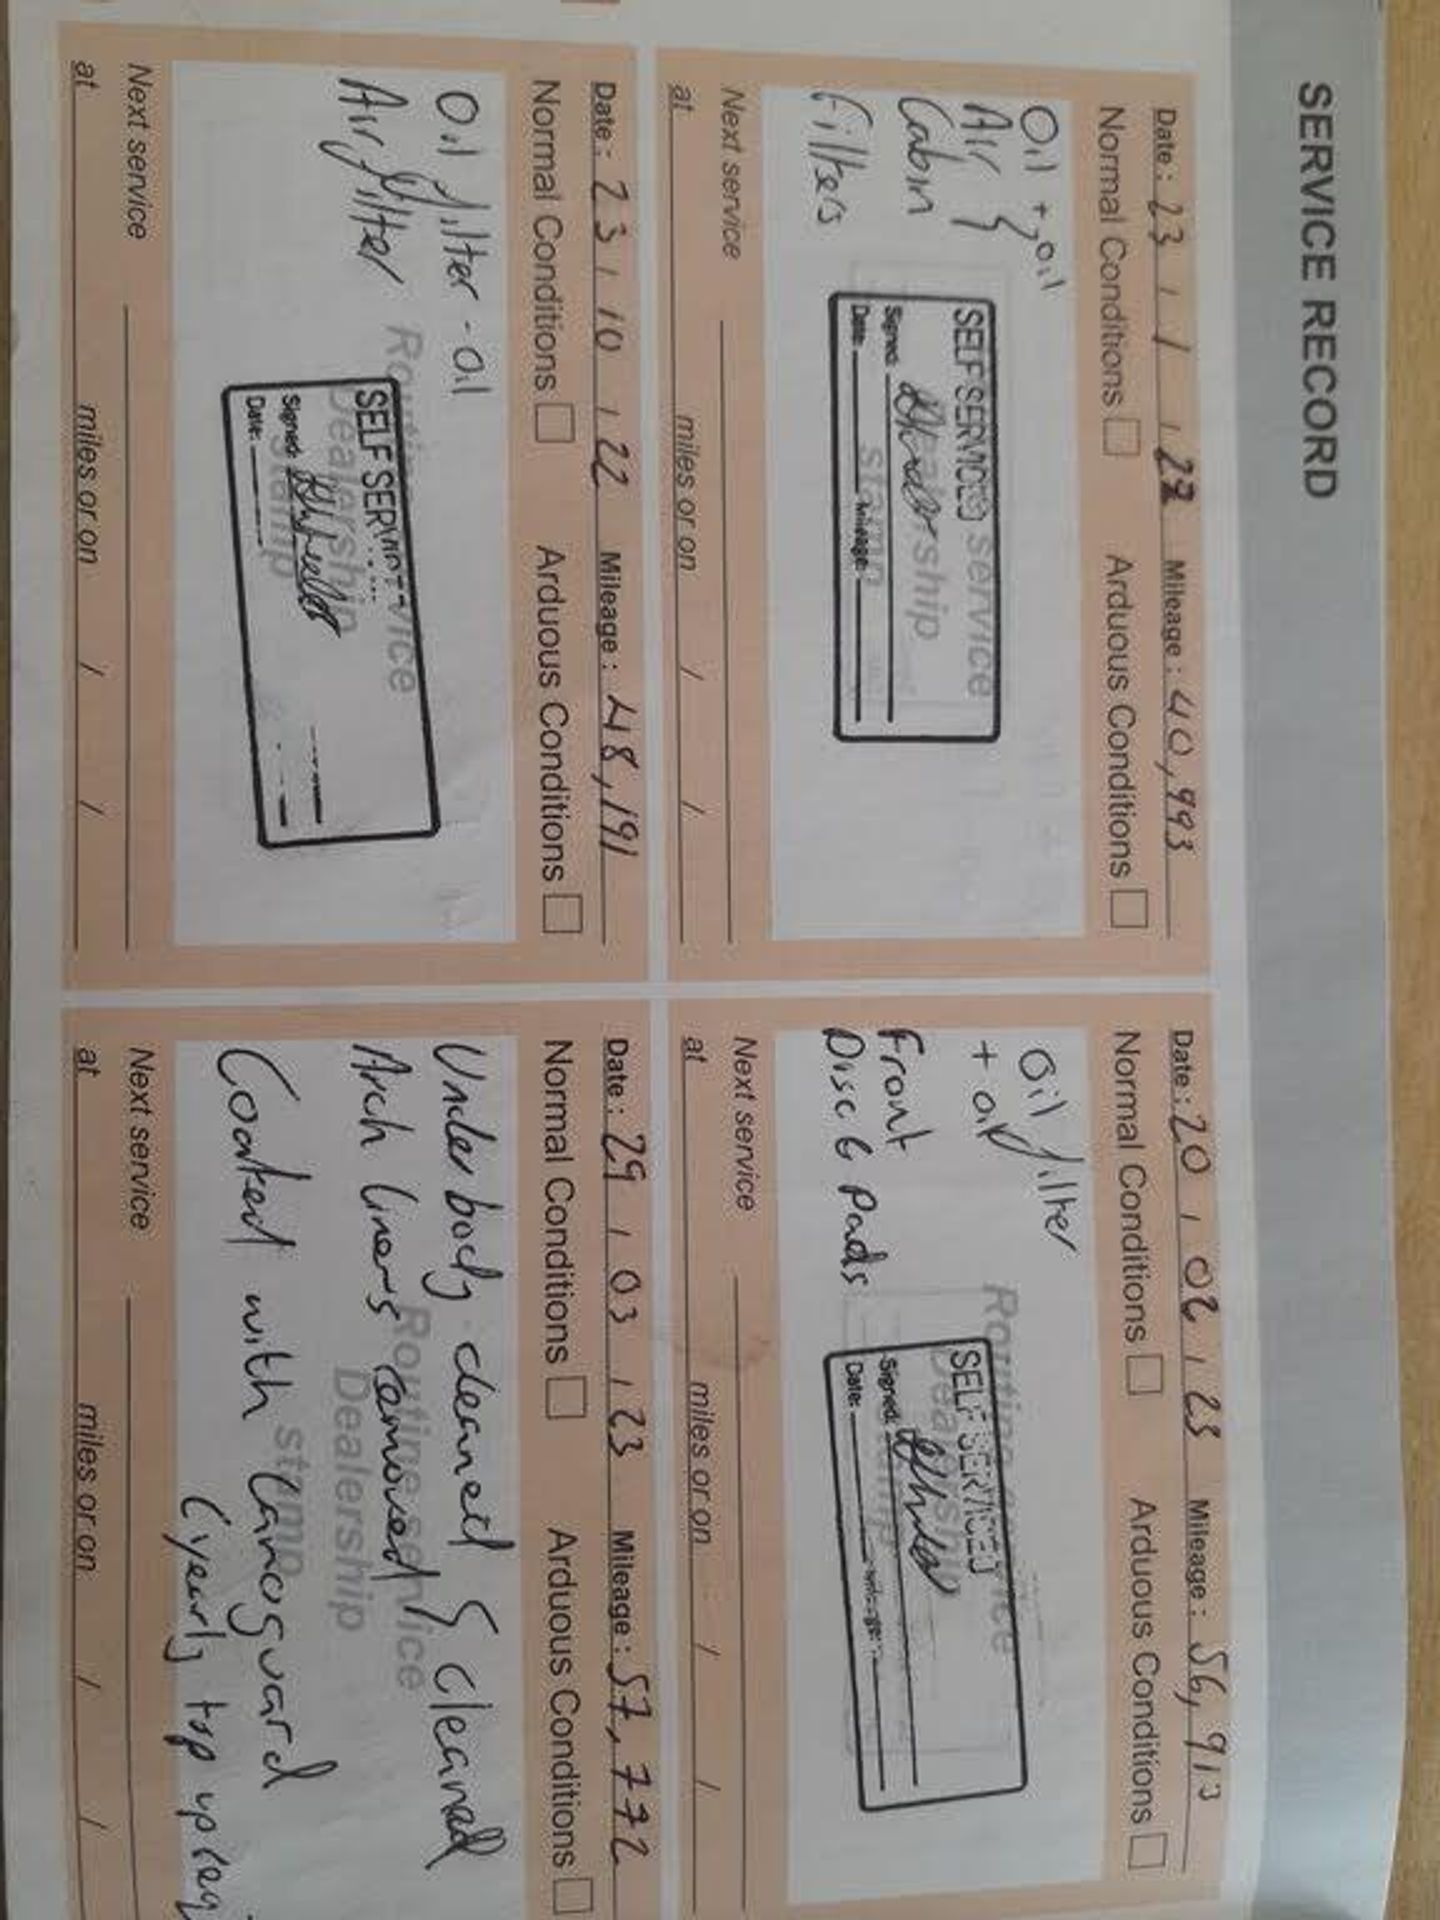 SERVICE RECORD
Date: 23 / 1 / 22 Mileage: 40,993
Normal Conditions Arduous Conditions
Oil + oil
Air }
Cabin
Filters
service
SELF SERVICED
Signed:
Date: Mileage:
Next service
at miles or on / /
Date: 20 / 02 / 23 Mileage: 56,913
Normal Conditions Arduous Conditions
Oil filter
+ oil
Front
Disc & Pads
SELF SERVICED
Signed:
Date:
Next service
at miles or on / /
Date: 23 / 10 / 22 Mileage: 48,191
Normal Conditions Arduous Conditions
Oil filter - Oil
Air filter
Dealership
stamp
Signed:
Date:
Next service
at miles or on / /
Date: 29 / 03 / 23 Mileage: 57,772
Normal Conditions Arduous Conditions
Underbody cleaned &
Arch liners removed & cleaned
Coated with Lanoguard
(yearly top up
Routine service
Dealership
stamp
Next service
at miles or on / /